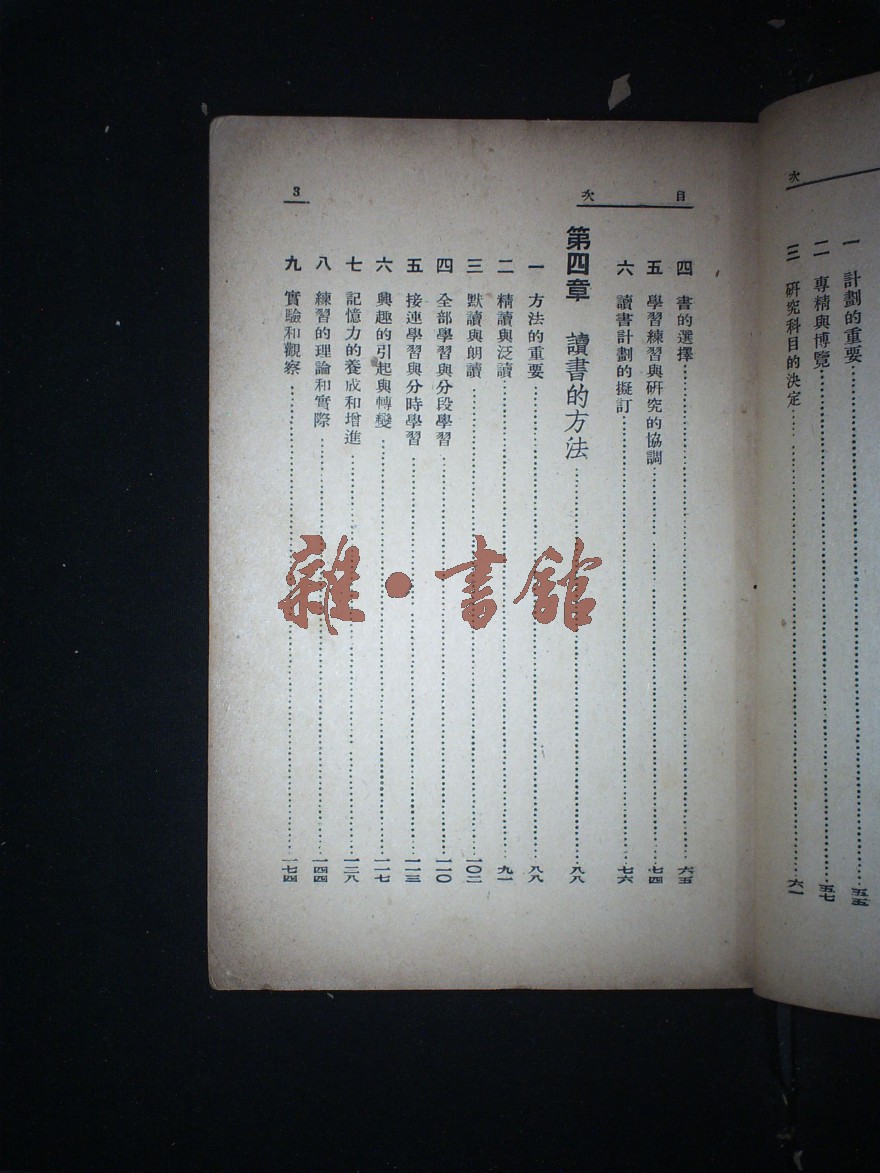 次
一 計劃的重要 五五
二 專精與博覽 五七
三 研究科目的決定 六一
目次
四 書的選擇 六五
五 學習練習與研究的協調 七四
六 讀書計劃的擬訂 七六
第四章 讀書的方法 八八
一 方法的重要 八八
二 精讀與泛讀 九一
三 默讀與朗讀 一〇二
四 全部學習與分段學習 一一〇
五 接連學習與分時學習 一一三
六 興趣的引起與轉變 一一七
七 記憶力的養成和增進 一三八
八 練習的理論和實際 一四四
九 實驗和觀察 一七四
3
雜·書館